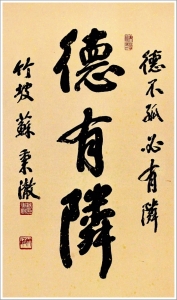 德不孤必有隣
德有隣
竹坡蘇秉徹